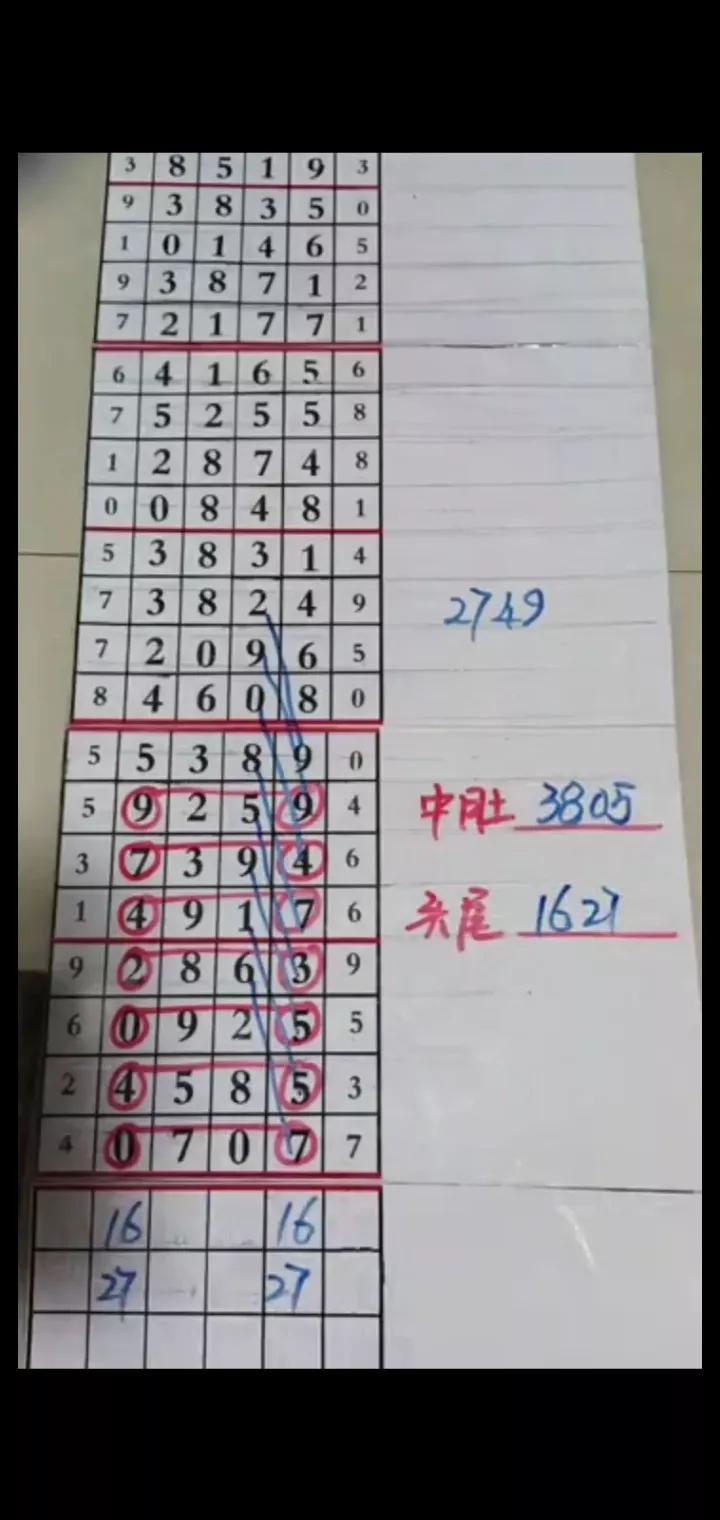 3 8 5 1 9 3
9 3 8 3 5 0
1 0 1 4 6 5
9 3 8 7 1 2
7 2 1 7 7 1
6 4 1 6 5 6
7 5 2 5 5 8
1 2 8 7 4 8
0 0 8 4 8 1
5 3 8 3 1 4
7 3 8 2 4 9 2749
7 2 0 9 6 5
8 4 6 0 8 0
5 5 3 8 9 0
5 9 2 5 9 4 中肚 3805
3 7 3 9 4 6
1 4 9 1 7 6 头尾 1627
9 2 8 6 3 9
6 0 9 2 5 5
2 4 5 8 5 3
4 0 7 0 7 7
16 16
27 27